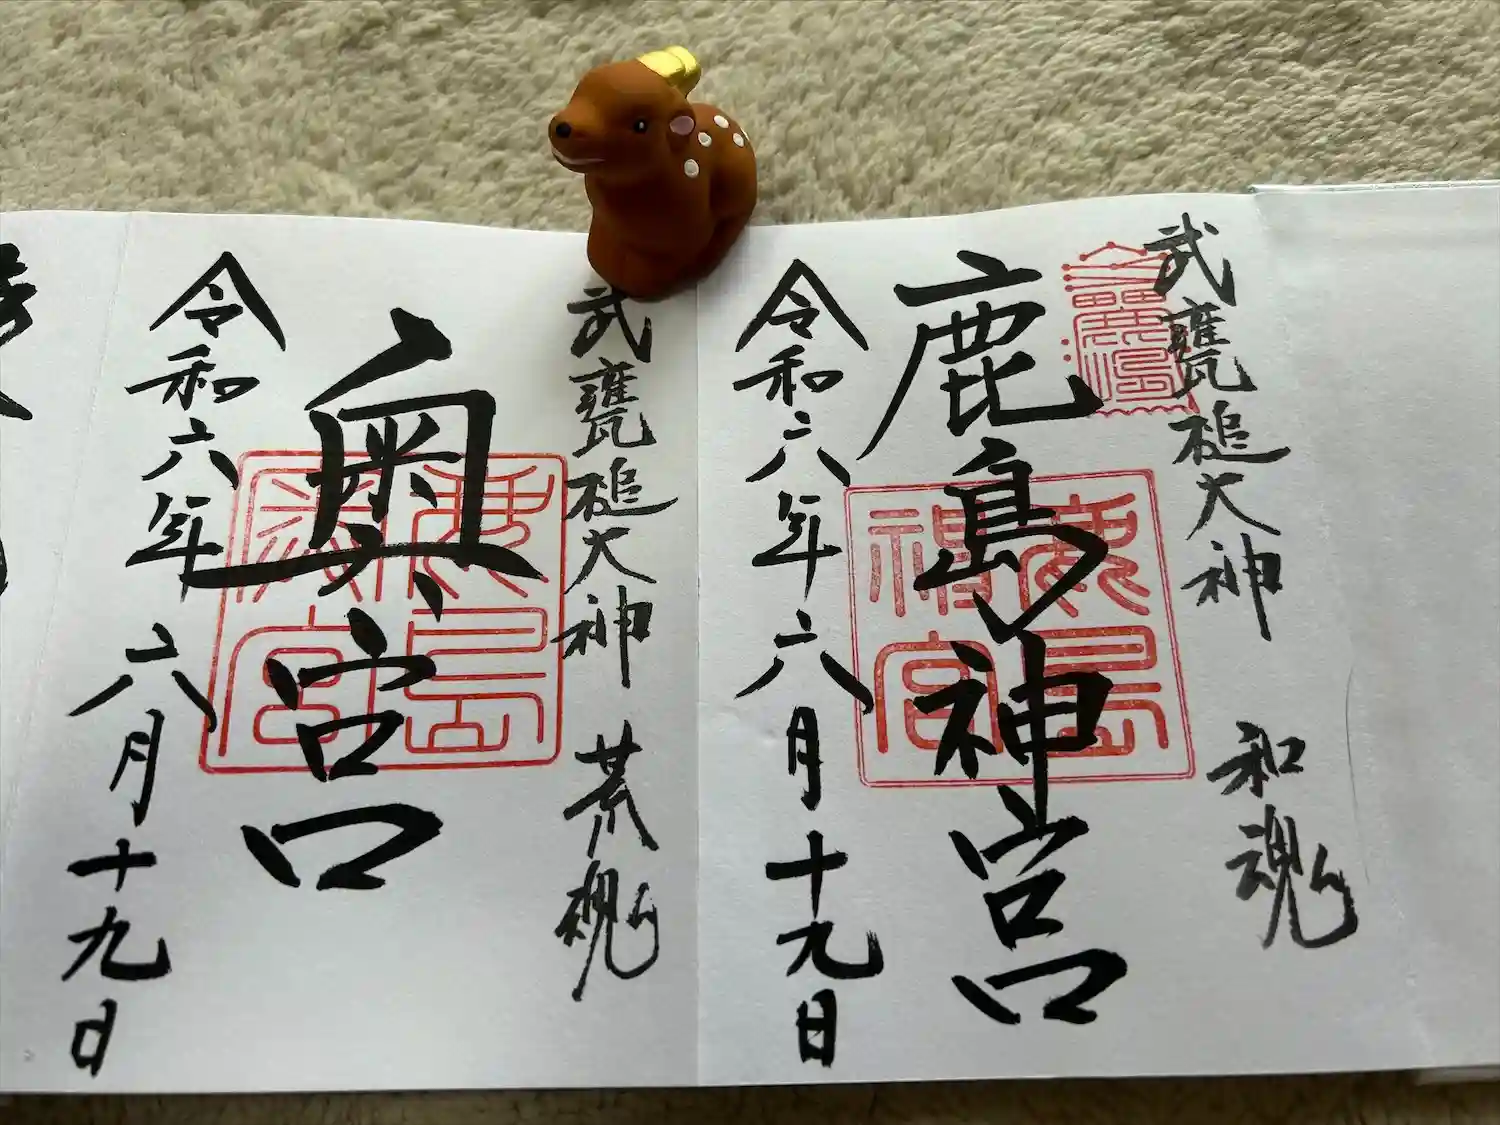 武甕槌大神 和魂
鹿島神宮
鹿島神宮
令和六年六月十九日
武甕槌大神 荒魂
奥宮
鹿島奥宮
令和六年六月十九日